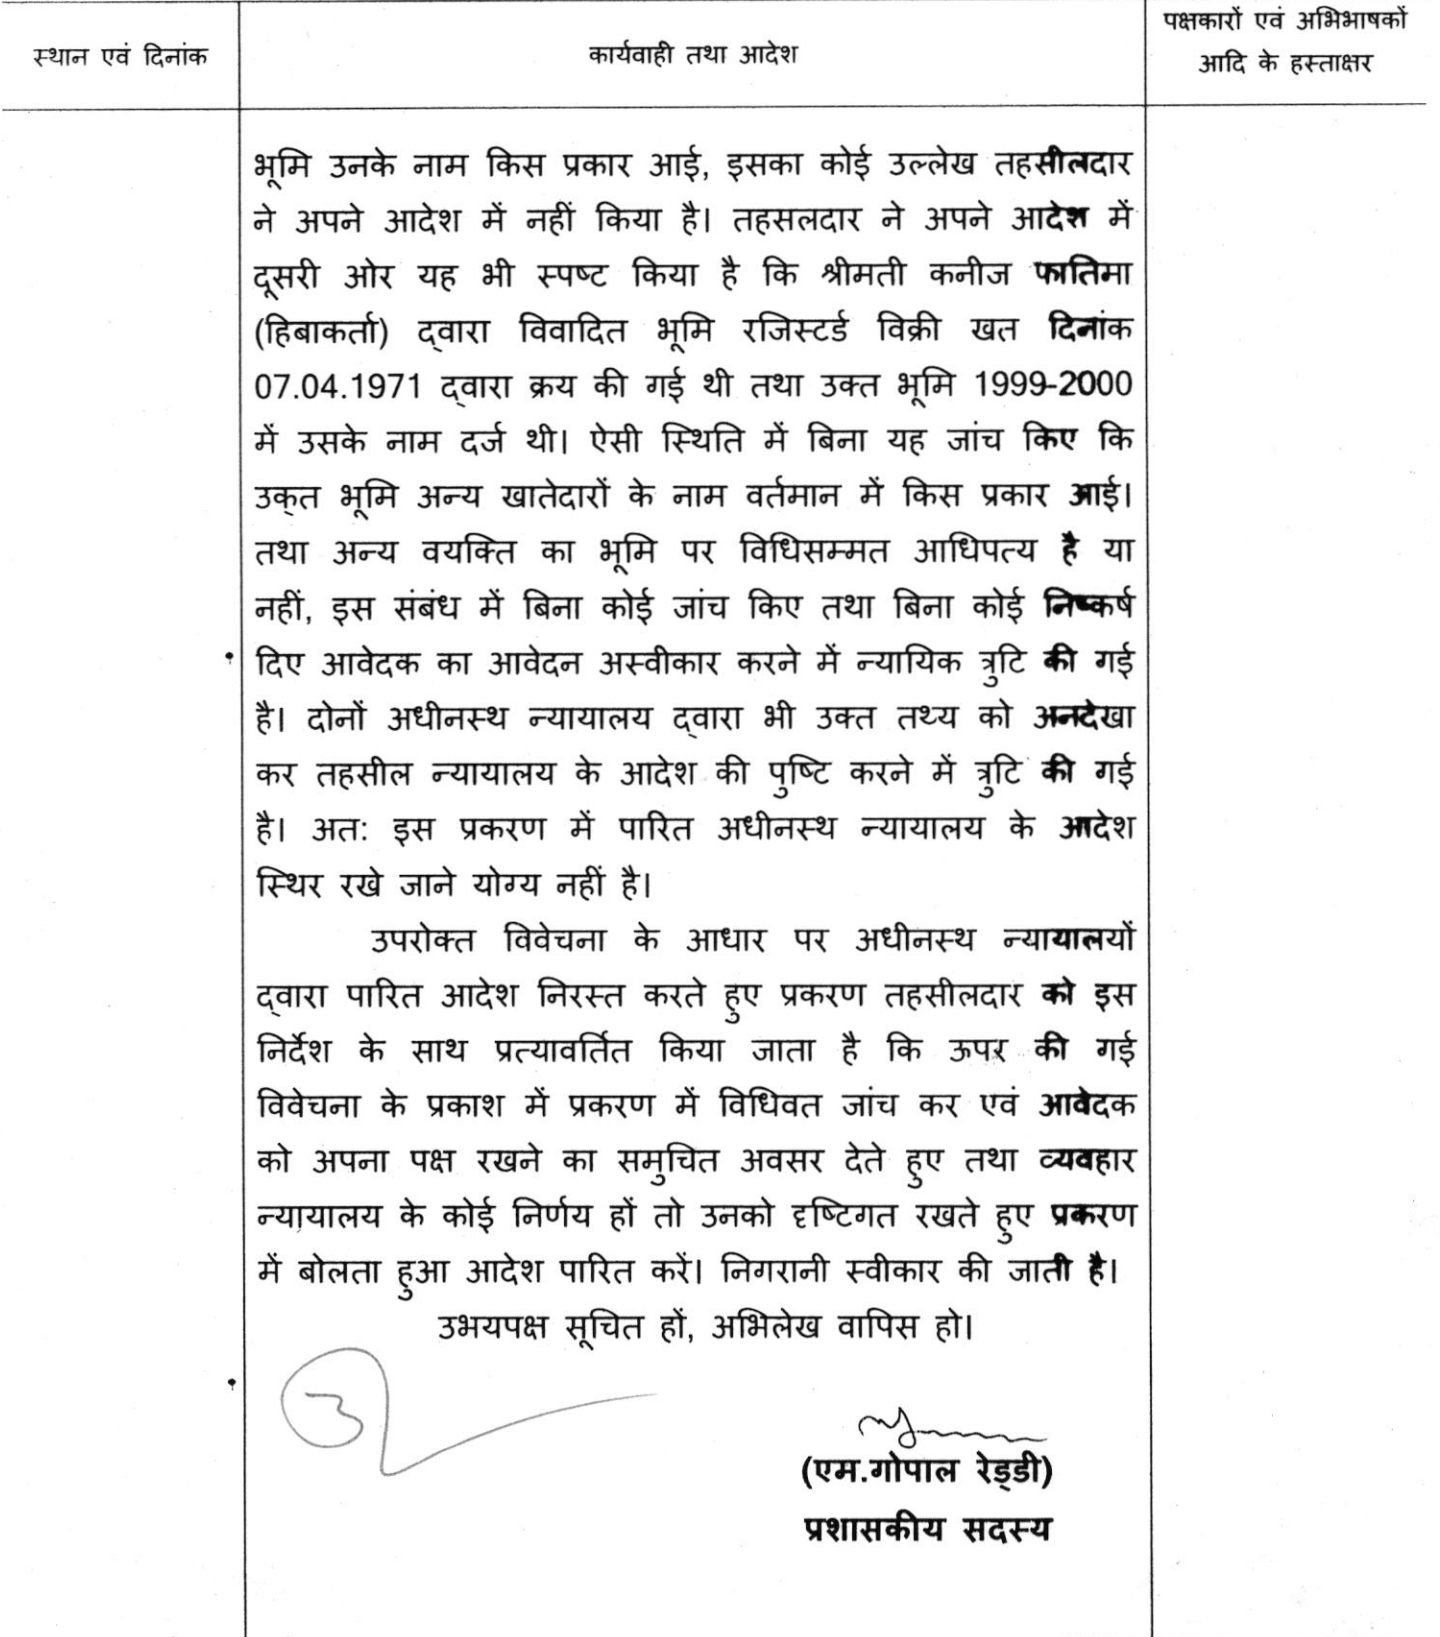 स्थान एवं दिनांक
कार्यवाही तथा आदेश
पक्षकारों एवं अभिभाषकों
आदि के हस्ताक्षर
भूमि उनके नाम किस प्रकार आई, इसका कोई उल्लेख तहसीलदार
ने अपने आदेश में नहीं किया है। तहसलदार ने अपने आदेश में
दूसरी ओर यह भी स्पष्ट किया है कि श्रीमती कनीज फातिमा
(हिबाकर्ता) द्‌वारा विवादित भूमि रजिस्टर्ड विक्री खत दिनांक
07.04.1971 द्‌वारा क्रय की गई थी तथा उक्त भूमि 1999-2000
में उसके नाम दर्ज थी। ऐसी स्थिति में बिना यह जांच किए कि
उक्‌त भूमि अन्य खातेदारों के नाम वर्तमान में किस प्रकार आई।
तथा अन्य वयक्ति का भूमि पर विधिसम्मत आधिपत्य है या
नहीं, इस संबंध में बिना कोई जांच किए तथा बिना कोई निष्कर्ष
दिए आवेदक का आवेदन अस्वीकार करने में न्यायिक त्रुटि की गई
है। दोनों अधीनस्थ न्यायालय द्‌वारा भी उक्त तथ्य को अनदेखा
कर तहसील न्यायालय के आदेश की पुष्टि करने में त्रुटि की गई
है। अत: इस प्रकरण में पारित अधीनस्थ न्यायालय के आदेश
स्थिर रखे जाने योग्य नहीं है।
उपरोक्त विवेचना के आधार पर अधीनस्थ न्यायालयों
द्‌वारा पारित आदेश निरस्त करते हुए प्रकरण तहसीलदार को इस
निर्देश के साथ प्रत्यावर्तित किया जाता है कि ऊपर की गई
विवेचना के प्रकाश में प्रकरण में विधिवत जांच कर एवं आवेदक
को अपना पक्ष रखने का समुचित अवसर देते हुए तथा व्यवहार
न्यायालय के कोई निर्णय हों तो उनको दृष्टिगत रखते हुए प्रकरण
में बोलता हुआ आदेश पारित करें। निगरानी स्वीकार की जाती है।
उभयपक्ष सूचित हों, अभिलेख वापिस हो।
(एम.गोपाल रेड्‌डी)
प्रशासकीय सदस्य